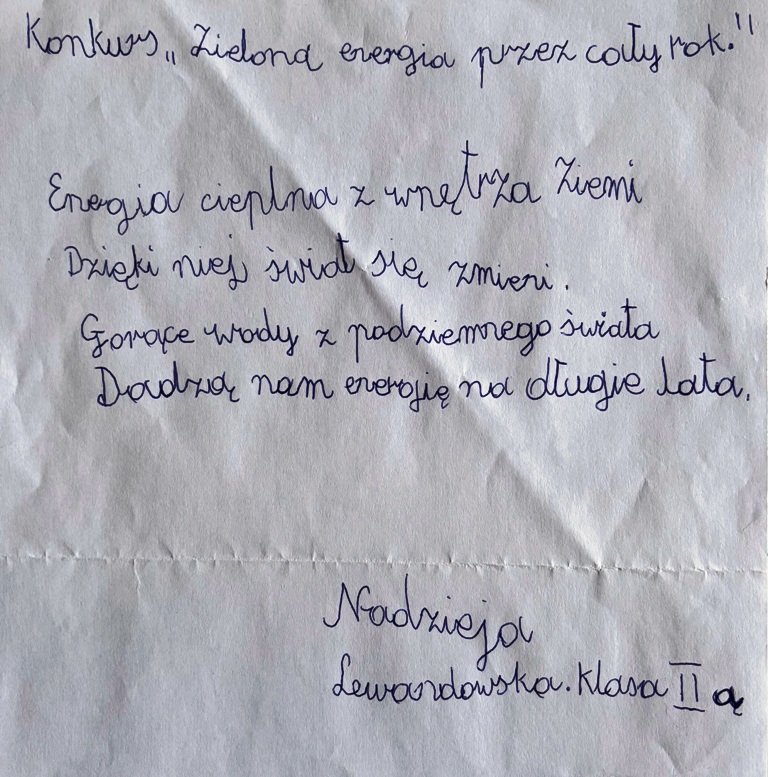 Konkurs „Zielona energia przez cały rok."
Energia cieplna z wnętrza Ziemi
Dzięki niej świat się zmieni.
Gorące wody z podziemnego świata
Dadzą nam energię na długie lata.
Nadzieja
Lewandowska. Klasa II a